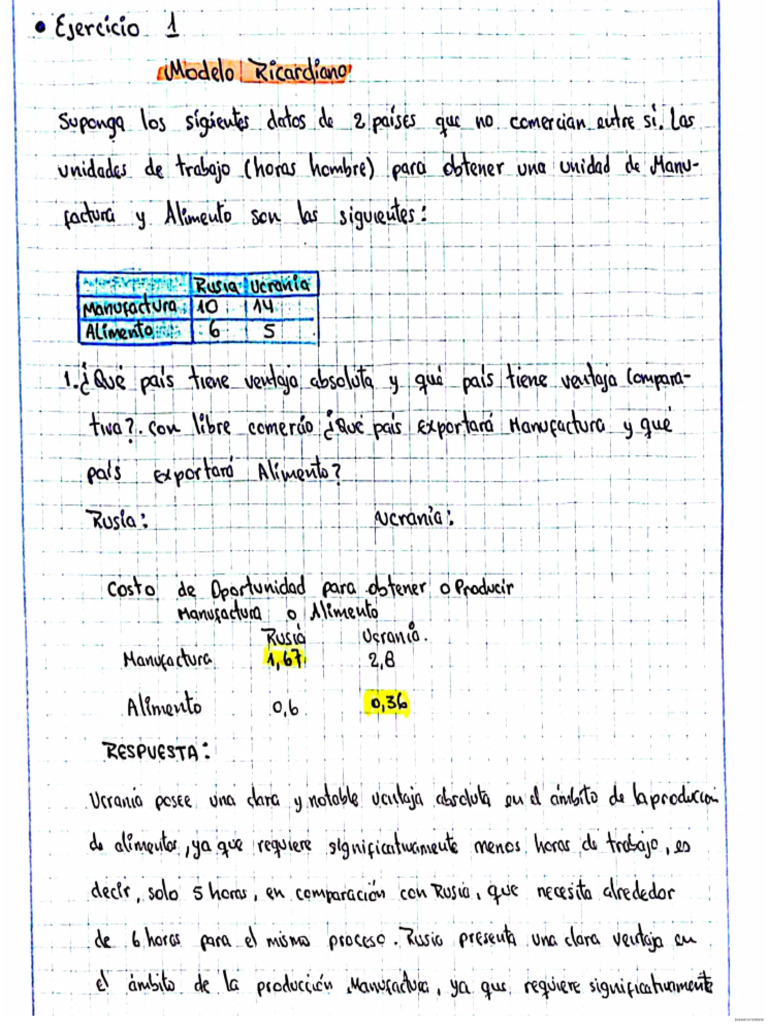 • Ejercicio 1
Modelo Ricardiano
Suponga los siguientes datos de 2 países que no comercian entre si. Las
unidades de trabajo (horas hombre) para obtener una unidad de Manu-
factura y Alimento son las siguientes:
Rusia Ucrania
Manufactura 10 14
Alimento 6 5
1. ¿Qué país tiene ventaja absoluta y qué país tiene ventaja Compara-
tiva?. con libre comercio ¿Qué país exportará Manufactura y qué
país exportará Alimento?
Rusia: Ucrania:
Costo de Oportunidad para obtener o Producir
Manufactura o Alimento
Rusia Ucrania.
Manufactura 1,67 2,8
Alimento 0,6 0,36
RESPUESTA:
Ucrania posee una clara y notable ventaja absoluta en el ámbito de la producción
de alimentos, ya que requiere significativamente menos horas de trabajo, es
decir, solo 5 horas, en comparación con Rusia, que necesita alrededor
de 6 horas para el mismo proceso. Rusia presenta una clara ventaja en
el ámbito de la producción Manufactura, ya que requiere significativamente